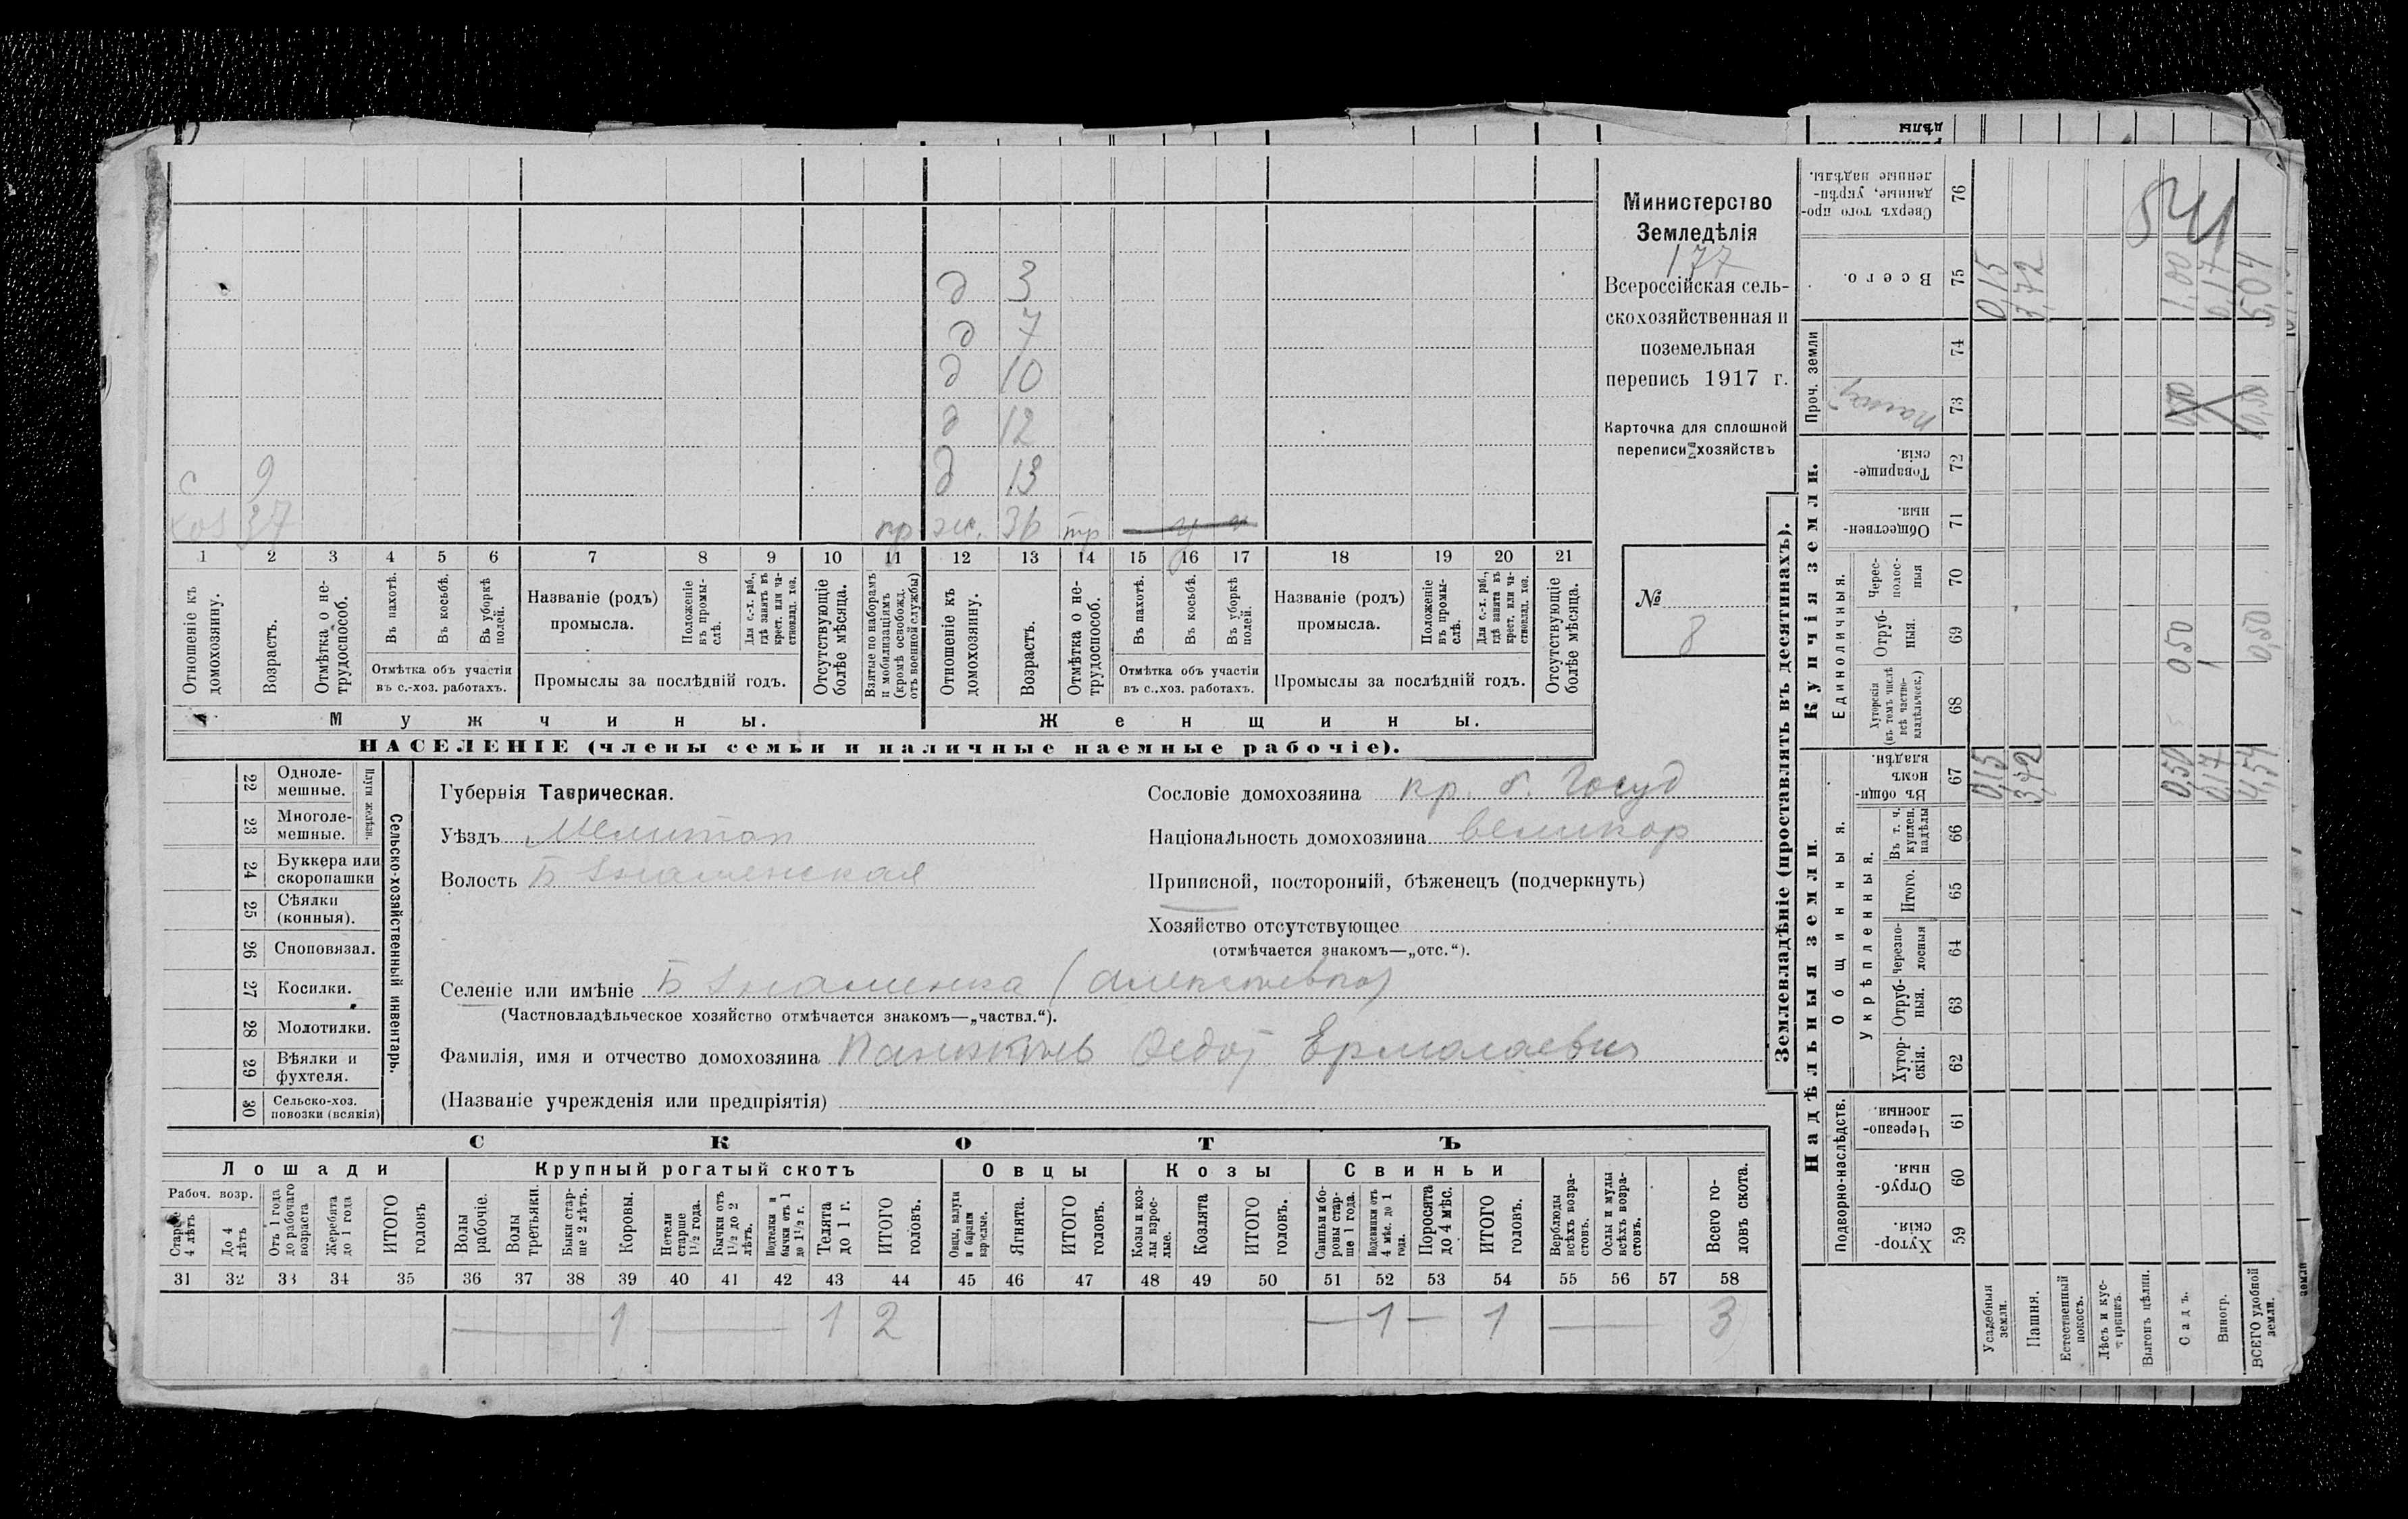 Министерство
Земледѣлія
177
Всероссійская сель-
скохозяйственная и
поземельная
перепись 1917 г.
Карточка для сплошной
переписи хозяйствъ
№
8
д 3
д 7
д 10
д 12
с 9 д 13
хоз 37 пр ж. 36 тр
1 2 3 4 5 6 7 8 9 10 11 12 13 14 15 16 17 18 19 20 21
Отношеніе къ домохозяину.
Возрастъ.
Отмѣтка о не-трудоспособ.
Въ пахотѣ.
Въ косьбѣ.
Въ уборкѣ полей.
Отмѣтка объ участіи
въ с.-хоз. работахъ.
Названіе (родъ)
промысла.
Положеніе въ промы-слѣ.
Для с.-х. раб., гдѣ занятъ въ крест. или ча-стновлад. хоз.
Промыслы за послѣдній годъ.
Отсутствующіе болѣе мѣсяца.
Взятые по наборамъ и мобилизаціямъ (кромѣ освобожд. отъ военной службы)
Отношеніе къ домохозяину.
Возрастъ.
Отмѣтка о не-трудоспособ.
Въ пахотѣ.
Въ косьбѣ.
Въ уборкѣ полей.
Отмѣтка объ участіи
въ с..хоз. работахъ.
Названіе (родъ)
промысла.
Положеніе въ промы-слѣ.
Для с.-х. раб., гдѣ занята въ крест. или ча-стновлад. хоз.
Промыслы за послѣдній годъ.
Отсутствующіе болѣе мѣсяца.
Мужчины. Женщины.
НАСЕЛЕНІЕ (члены семьи и наличные наемные рабочіе).
22 Одноле-мешные.
23 Многоле-мешные.
Плуги желѣзн.
24 Буккера или скоропашки
25 Сѣялки (конныя).
26 Сноповязал.
27 Косилки.
28 Молотилки.
29 Вѣялки и фухтеля.
30 Сельско-хоз. повозки (всякія)
Сельско-хозяйственный инвентарь.
Губернія Таврическая.
Уѣздъ Мелитоп
Волость Б Знаменская
Сословіе домохозяина кр. б. Госуд
Національность домохозяина великор
Приписной, посторонній, бѣженецъ (подчеркнуть)
Хозяйство отсутствующее
(отмѣчается знакомъ—„отс.“).
Селеніе или имѣніе Б Знаменка (Алексѣевка)
(Частновладѣльческое хозяйство отмѣчается знакомъ—„частвл.“).
Фамилія, имя и отчество домохозяина Федот Ермолаевич
(Названіе учрежденія или предпріятія)
СКОТЪ
Лошади Крупный рогатый скотъ Овцы Козы Свиньи
Рабоч. возр.
Старше 4 лѣтъ
До 4 лѣтъ
Отъ 1 года до рабочаго возраста
Жеребята до 1 года
ИТОГО головъ
Волы рабочіе.
Волы третьяки.
Быки стар-ше 2 лѣтъ.
Коровы.
Нетели старше 1½ года.
Бычки отъ 1½ до 2 лѣтъ.
Подтелки и бычки отъ 1 до 1½ г.
Телята до 1 г.
ИТОГО головъ.
Овцы, валухи и бараны взрослые.
Ягнята.
ИТОГО головъ.
Козы и коз-лы взрос-лые.
Козлята
ИТОГО головъ.
Свиньи и бо-ровы стар-ше 1 года.
Подсвинки отъ 4 мѣс. до 1 года.
Поросята до 4 мѣс.
ИТОГО головъ.
Верблюды всѣхъ возра-стовъ.
Ослы и мулы всѣхъ возра-стовъ.
Всего го-ловъ скота.
31 32 33 34 35 36 37 38 39 40 41 42 43 44 45 46 47 48 49 50 51 52 53 54 55 56 57 58
— 1 — 1 2 — 1 — 1 — 3
Землевладѣніе (проставлять въ десятинахъ).
Надѣльныя земли. Купчія земли.
Подворно-наслѣдств.
Общинныя.
Укрѣпленныя.
Единоличныя.
Проч. земли
Хутор-скія. 59
Отруб-ныя. 60
Черезпо-лосныя. 61
Хутор-скія. 62
Отруб-ныя. 63
Черезпо-лосныя 64
Итого. 65
Въ т. ч. куплен. надѣлы 66
Въ общин-номъ владѣн. 67
Хуторскія (въ томъ числѣ всѣ частно-владѣльческ.) 68
Отруб-ныя. 69
Черес-полос-ныя 70
Обществен-ныя. 71
Товарище-скія. 72
73
74
Всего. 75
Сверхъ того про-данные, укрѣп-ленные надѣлы. 76
Усадебныя земли. 0,15 0,15
Пашня. 3,72 3,72
Естественный покосъ.
Лѣсъ и кус-тарникъ.
Выгонъ цѣлин.
Садъ. 0,50 0,50 1,00
Виногр. 0,17 0,17
ВСЕГО удобной земли. 4,54 0,50 0,50 5,04
541